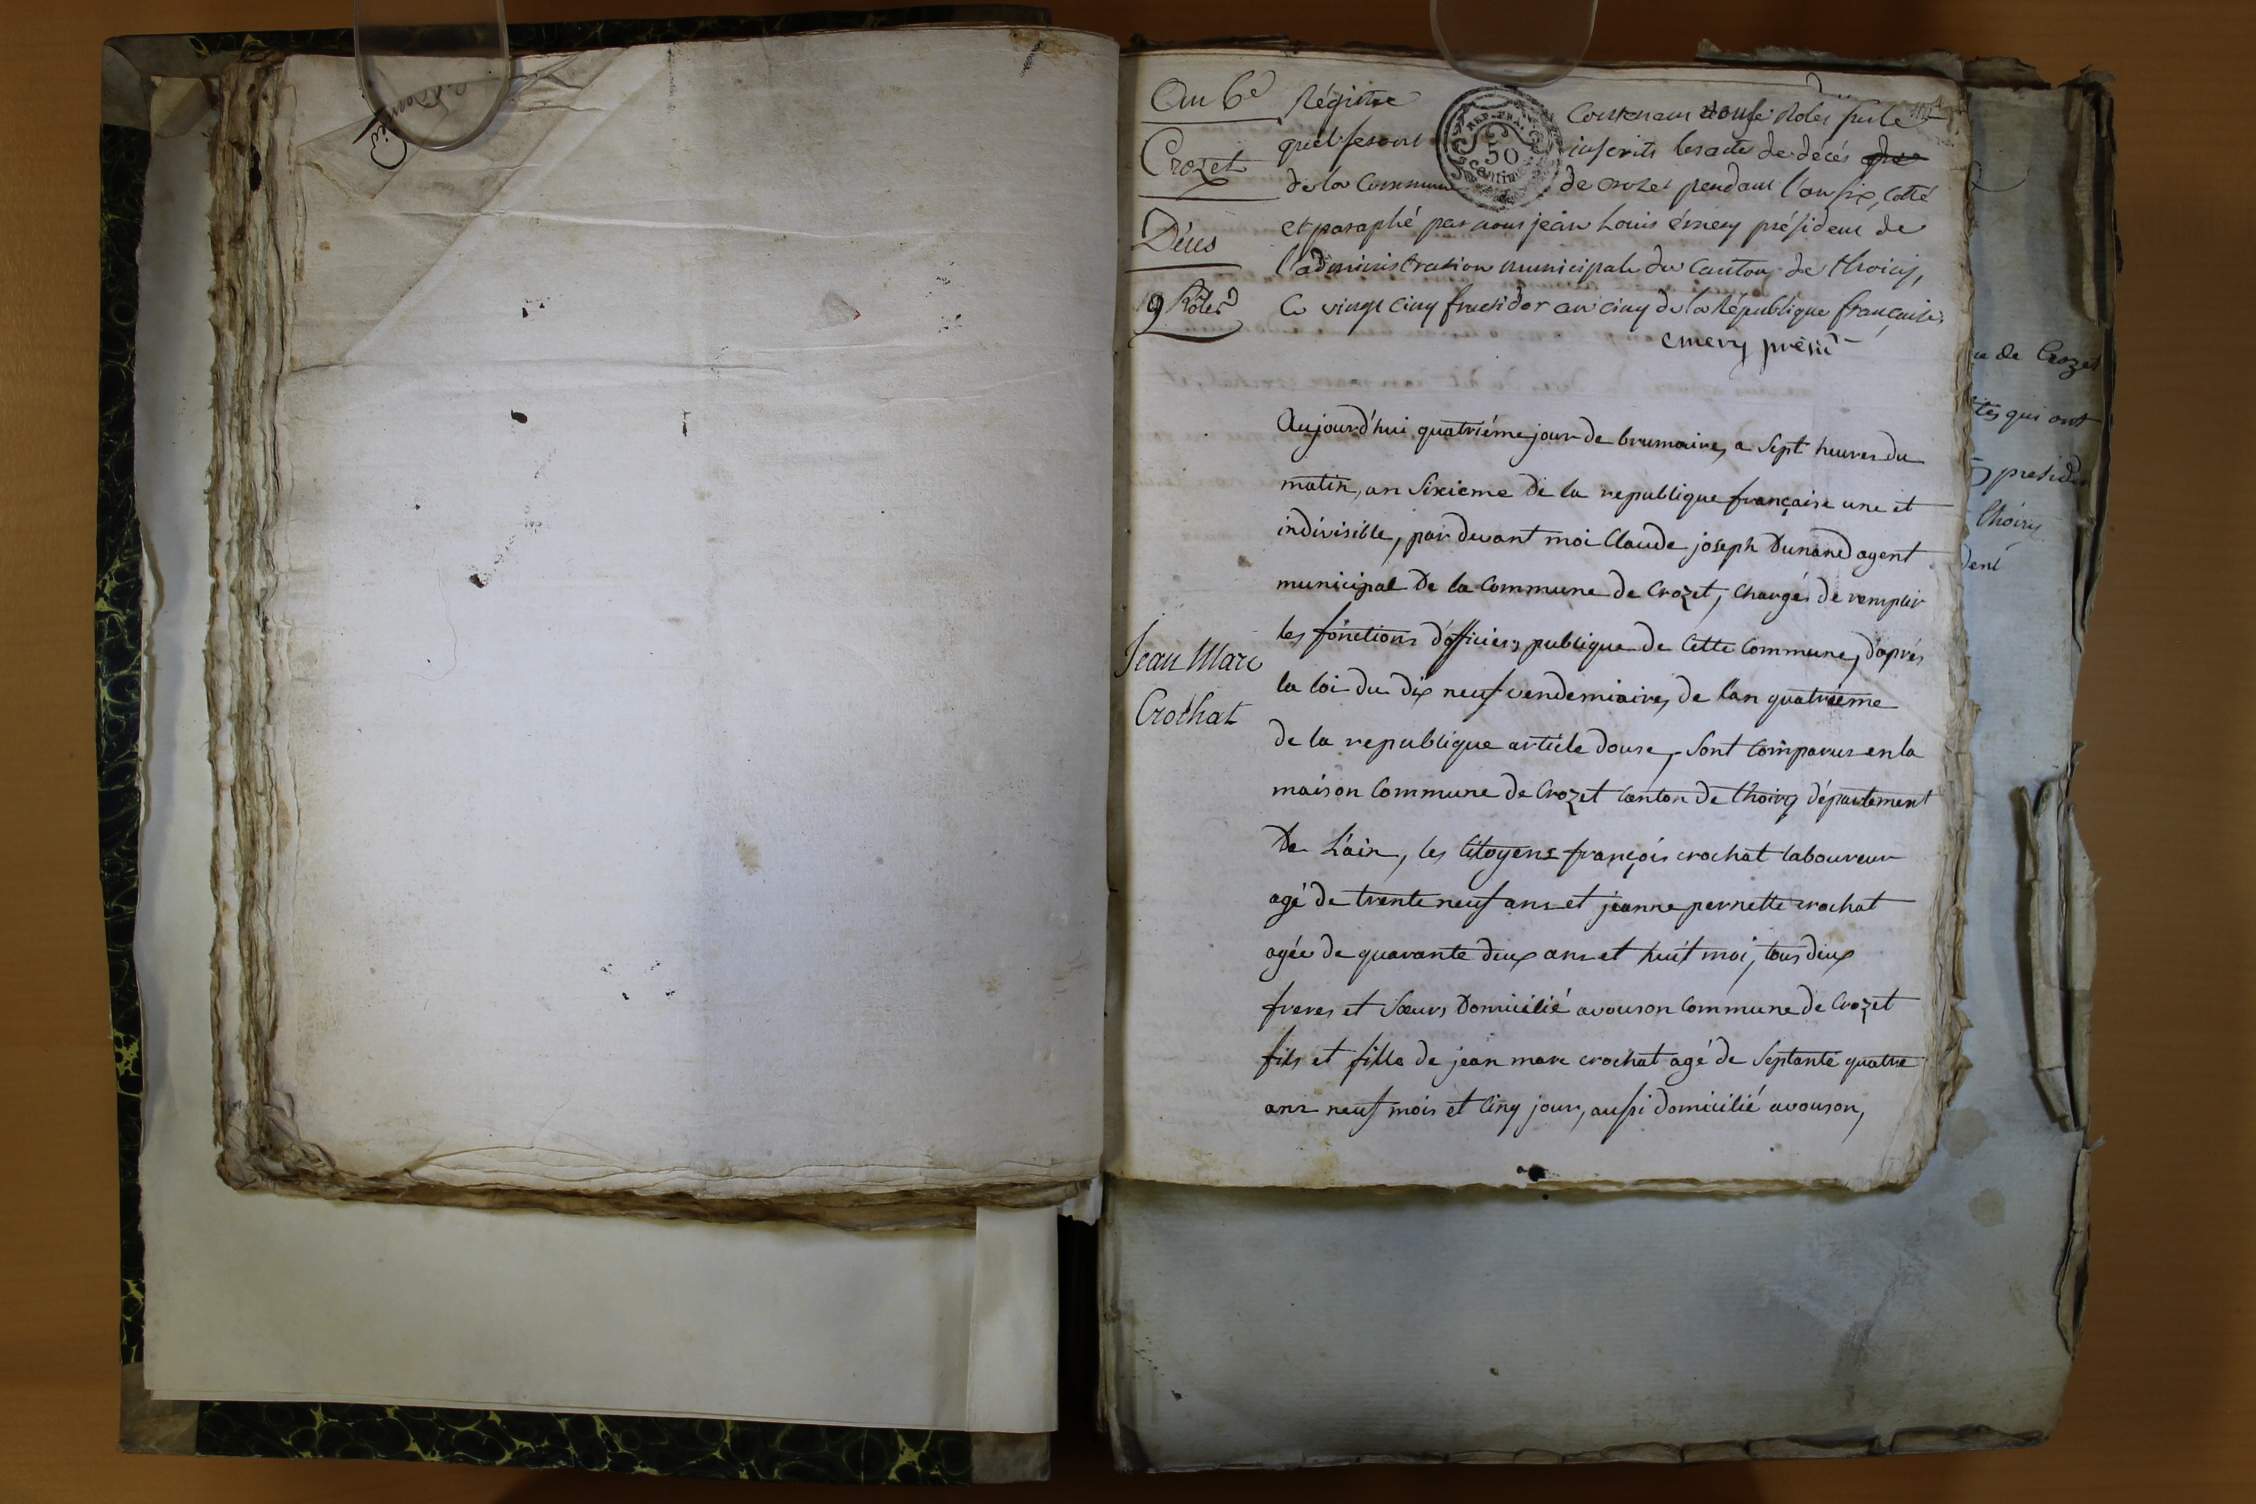 An 6e
Crozet
Déces
9 Rôles
Régistre contenant douse Roles sur le
quel seront inscrits les acte de décés
de la Commune de crozet pendant l'an six, cotté
et paraphé par nous jean Louis émery président de
l'administration municipale du canton de thoiry,
Ce vingt cinq fructidor an cinq de la République française,
emery présid
REP. FRA.
50
Centim
Aujourd'hui quatriéme jour de brumaire, a sept heures du
matin, an sixieme de la republique française une et
indivisible, par devant moi Claude joseph Dunand agent
municipal De la Commune de Crozet, Chargés de remplir
les fonctions d'officiers publique de Cette Commune, d'aprés
la loi du dix neuf vendemiaire, de l'an quatrieme
de la republique article douse, sont comparus en la
maison Commune de Crozet canton de thoiry département
De L'ain, les Citoyens françois crochat laboureur
agé de trente neuf ans et jeanne pernette crochat
agée de quarante deux ans et huit moi, tous deux
freres et sœurs Domicilié avouson Commune de Crozet
fils et fille de jean marc crochat agé de septante quatre
ans neuf mois et Cinq jour, aussi domicilié avouson,
Jean Marc
Crochat
de Crozet
qui ont
presid
thoiry